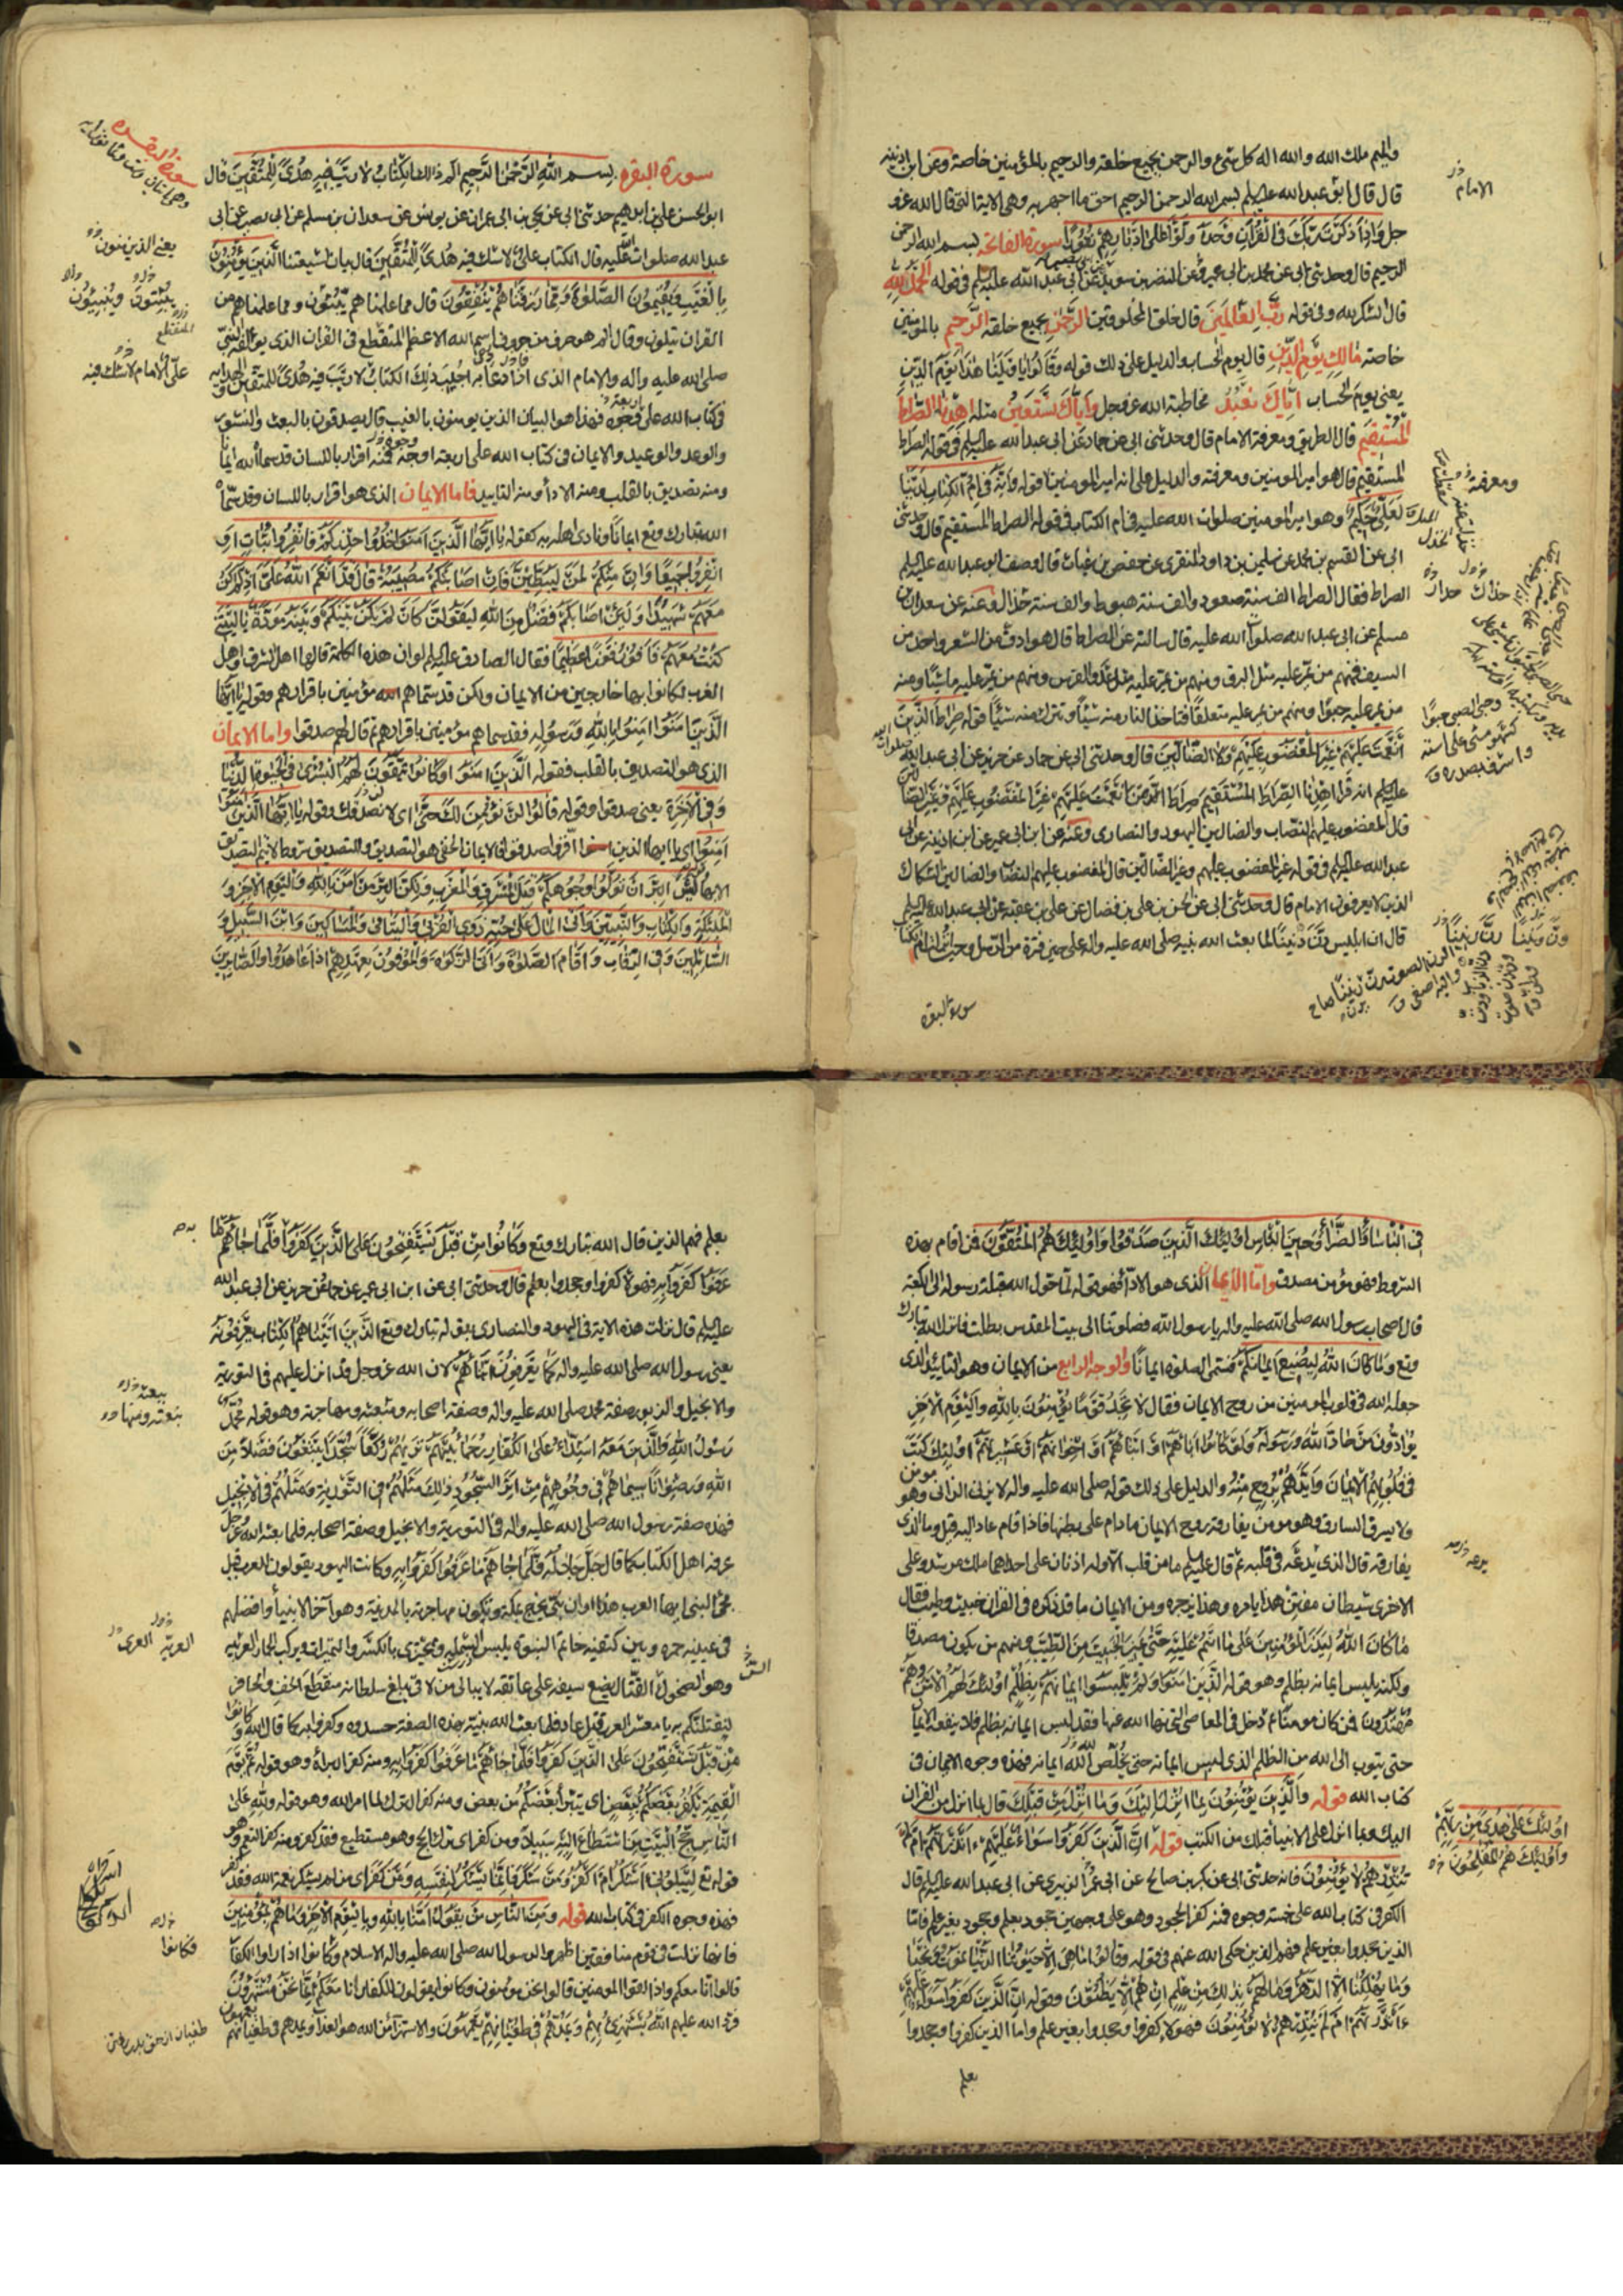 والميم ملك الله والله اله كل شيء والرحمن بجميع خلقه والرحيم بالمؤمنين خاصة وعن ابن اذينه
قال قال ابو عبدالله عليه السلم بسم الله الرحمن الرحيم احق ما اجهر به وهي الاية التي قال الله عز و
جل وَاِذَا ذَكَرْتَ رَبَّكَ فِى الْقُرْآنِ وَحْدَهُ وَلَّوْا عَلىٰ اَدْبَارِهِمْ نُفُورًا سورة الفاتحة بسم الله الرحمن
الرحيم قال وحدثني ابي عن محمد بن ابي عمير وعن النضر بن سويد عن ابي عبد الله عليه السلم في قوله الحمد لله
قال الشكر لله وفي قوله رَبِّ الْعَالَمِينَ قال خلق المخلوقين الرَّحْمٰنِ بجميع خلقه الرَّحِيمِ بالمؤمنين
خاصة مَالِكِ يَوْمِ الدِّينِ قال يوم الحساب والدليل على ذلك قوله وَقَالُوا يَا وَيْلَنَا هٰذَا يَوْمُ الدِّينِ
يعنى يوم الحساب اِيَّاكَ نَعْبُدُ مخاطبة الله عز وجل وَاِيَّاكَ نَسْتَعِينُ مثله اِهْدِنَا الصِّرَاطَ
الْمُسْتَقِيمَ قال الطريق ومعرفة الامام قال وحدثني ابي عن حماد عن ابي عبدالله عليه السلم في قوله الصراط
المستقيم قال هو امير المومنين ومعرفته والدليل على انه امير المومنين قوله وَاِنَّهُ فِى اُمِّ الْكِتَابِ لَدَيْنَا
لَعَلِىٌّ حَكِيمٌ وهو امير المومنين صلوات الله عليه في ام الكتاب في قوله الصراط المستقيم قال وحدثني
ابي عن القسم بن محمد عن سليمن بن داود المنقري عن حفص بن غياث قال وصف ابو عبدالله عليه السلم
الصراط فقال الصراط الف سنة صعود والف سنة هبوط والف سنة حذال وعنه عن سعدان بن
مسلم عن ابي عبدالله صلوات الله عليه قال سالته عن الصراط قال هو ادق من الشعر واحد من
السيف فمنهم من يمر عليه مثل البرق ومنهم من يمر عليه مثل عدو الفرس ومنهم من يمر عليه ماشيا ومنهم
من يمر عليه حبوا ومنهم من يمر عليه متعلقا فتاخذ النار منه شيئا وتترك منه شيئا قوله صِرَاطَ الَّذِينَ
اَنْعَمْتَ عَلَيْهِمْ غَيْرِ الْمَغْضُوبِ عَلَيْهِمْ وَلَا الضَّالِّينَ قال وحدثني ابي عن حماد عن حريز عن ابي عبدالله
عليه السلم انه قرا اِهْدِنَا الصِّرَاطَ الْمُسْتَقِيمَ صِرَاطَ مَنْ اَنْعَمْتَ عَلَيْهِمْ غَيْرِ الْمَغْضُوبِ عَلَيْهِمْ وَغَيْرِ الضَّالِّينَ
قال المغضوب عليهم النصاب والضالين اليهود والنصارى وعنه عن ابن ابي عمير عن ابن اذينه عن ابي
عبدالله عليه السلم في قوله غير المغضوب عليهم وغير الضالين قال المغضوب عليهم النصاب والضالين الشكاك
الذين لا يعرفون الامام قال وحدثني ابي عن الحسن بن علي بن فضال عن علي بن عقبه عن ابي عبدالله عليه السلم
قال ان ابليس رنّ رنينا لما بعث الله نبيه صلى الله عليه واله على حين فترة من الرسل وحين انزلت ام الكتاب
الامام
ومعرفته
سورة البقره
سورة البقره بِسم اللهِ الرَّحْمٰنِ الرَّحِيمِ الٓمٓ ذٰلِكَ الْكِتَابُ لَا رَيْبَ فِيهِ هُدًى لِلْمُتَّقِينَ قال
ابو الحسن علي بن ابرهيم حدثني ابي عن يحيى بن ابي عمران عن يونس عن سعدان بن مسلم عن ابي بصير عن ابي
عبدالله صلوات الله عليه قال الكتاب عليّ لا شك فيه هُدًى لِلْمُتَّقِينَ قال بيان لشيعتنا اَلَّذِينَ يُؤْمِنُونَ
بِالْغَيْبِ وَيُقِيمُونَ الصَّلٰوةَ وَمِمَّا رَزَقْنَاهُمْ يُنْفِقُونَ قال مما علمناهم يبثون ومما علمناهم من
القران يتلون وقال الم هو حرف من حروف اسم الله الاعظم المتقطع في القران الذي يؤلفه النبي
صلى الله عليه واله والامام الذي اذا دعا به اجيب ذٰلِكَ الْكِتَابُ لَا رَيْبَ فِيهِ هُدًى لِلْمُتَّقِينَ الهداية
في كتاب الله على وجوه فهذا هو البيان الذين يومنون بالغيب قال يصدقون بالبعث والنشور
والوعد والوعيد والايمان في كتاب الله على اربعة اوجه فمنه اقرار باللسان قد سماه الله ايمانا
ومنه تصديق بالقلب ومنه الادأ ومنه التاييد فاما الايمان الذي هو اقرار باللسان وقد سماه
الله تبارك وتع ايمانا ونادى اهله به كقوله يَا اَيُّهَا الَّذِينَ آمَنُوا خُذُوا حِذْرَكُمْ فَانْفِرُوا ثُبَاتٍ اَوِ
انْفِرُوا جَمِيعًا وَاِنَّ مِنْكُمْ لَمَنْ لَيُبَطِّئَنَّ فَاِنْ اَصَابَتْكُمْ مُصِيبَةٌ قَالَ قَدْ اَنْعَمَ اللهُ عَلَىَّ اِذْ لَمْ اَكُنْ
مَعَهُمْ شَهِيدًا وَلَئِنْ اَصَابَكُمْ فَضْلٌ مِنَ اللهِ لَيَقُولَنَّ كَاَنْ لَمْ يَكُنْ بَيْنَكُمْ وَبَيْنَهُ مَوَدَّةٌ يَالَيْتَنِى
كُنْتُ مَعَهُمْ فَاَفُوزَ فَوْزًا عَظِيمًا فقال الصادق عليه السلم لو ان هذه الكلمة قالها اهل الشرق واهل
الغرب لكانوا بها خارجين من الايمان ولكن قد سماهم الله مؤمنين باقرارهم وقوله يَا اَيُّهَا
الَّذِينَ آمَنُوا آمِنُوا بِاللهِ وَرَسُولِهِ فقد سماهم مؤمنين باقرارهم ثم قال لهم صدقوا واما الايمان
الذي هو التصديق بالقلب فقوله الَّذِينَ آمَنُوا وَكَانُوا يَتَّقُونَ لَهُمُ الْبُشْرٰى فِى الْحَيٰوةِ الدُّنْيَا
وَفِى الْآخِرَةِ يعني صدقوا وقوله قَالُوا لَنْ نُؤْمِنَ لَكَ حَتّٰى اي لا نصدقك وقوله يَا اَيُّهَا الَّذِينَ
آمَنُوا آمِنُوا اي يا ايها الذين اقروا صدقوا فالايمان الخفي هو التصديق وللتصديق شروط لا يتم التصديق
الا بها لَيْسَ الْبِرَّ اَنْ تُوَلُّوا وُجُوهَكُمْ قِبَلَ الْمَشْرِقِ وَالْمَغْرِبِ وَلٰكِنَّ الْبِرَّ مَنْ آمَنَ بِاللهِ وَالْيَوْمِ الْآخِرِ وَ
الْمَلٰئِكَةِ وَالْكِتَابِ وَالنَّبِيِّينَ وَآتَى الْمَالَ عَلىٰ حُبِّهِ ذَوِى الْقُرْبٰى وَالْيَتَامٰى وَالْمَسَاكِينَ وَابْنَ السَّبِيلِ وَ
السَّائِلِينَ وَفِى الرِّقَابِ وَاَقَامَ الصَّلٰوةَ وَآتَى الزَّكٰوةَ وَالْمُوفُونَ بِعَهْدِهِمْ اِذَا عَاهَدُوا وَالصَّابِرِينَ
سورة البقره
يعنى الذين يؤمنون
على الامام لا شك فيه
فِى الْبَأْسَاءِ وَالضَّرَّاءِ وَحِينَ الْبَأْسِ اُولٰئِكَ الَّذِينَ صَدَقُوا وَاُولٰئِكَ هُمُ الْمُتَّقُونَ فمن اقام بهذه
الشروط فهو مؤمن مصدق واما الايمان الذي هو الادأ فهو قوله لما حول الله قبلة رسوله الى الكعبة
قال اصحاب رسول الله صلى الله عليه واله يا رسول الله فصلوتنا الى بيت المقدس بطلت فانزل الله تبارك
وتع وَمَا كَانَ اللهُ لِيُضِيعَ اِيمَانَكُمْ فسمى الصلوة ايمانا والوجه الرابع من الايمان وهو التاييد الذي
جعله الله في قلوب المومنين من روح الايمان فقال لَا تَجِدُ قَوْمًا يُؤْمِنُونَ بِاللهِ وَالْيَوْمِ الْآخِرِ
يُوَادُّونَ مَنْ حَادَّ اللهَ وَرَسُولَهُ وَلَوْ كَانُوا آبَاءَهُمْ اَوْ اَبْنَاءَهُمْ اَوْ اِخْوَانَهُمْ اَوْ عَشِيرَتَهُمْ اُولٰئِكَ كَتَبَ
فِى قُلُوبِهِمُ الْاِيمَانَ وَاَيَّدَهُمْ بِرُوحٍ مِنْهُ والدليل على ذلك قوله صلى الله عليه واله لا يزني الزاني وهو مومن
ولا يسرق السارق وهو مومن يفارقه روح الايمان ما دام على بطنها فاذا قام عاد اليه قيل وما الذي
يفارقه قال الذي يدعه في قلبه ثم قال عليه السلم ما من قلب الا وله اذنان على احداهما ملك مرشد وعلى
الاخرى شيطان مفتن هذا يامره وهذا يزجره ومن الايمان ما قد ذكره في القران خبيث وطيب فقال
مَا كَانَ اللهُ لِيَذَرَ الْمُؤْمِنِينَ عَلىٰ مَا اَنْتُمْ عَلَيْهِ حَتّٰى يَمِيزَ الْخَبِيثَ مِنَ الطَّيِّبِ ومنهم من يكون مصدقا
ولكنه يلبس ايمانه بظلم وهو قوله اَلَّذِينَ آمَنُوا وَلَمْ يَلْبِسُوا اِيمَانَهُمْ بِظُلْمٍ اُولٰئِكَ لَهُمُ الْاَمْنُ وَهُمْ
مُهْتَدُونَ فمن كان مومنا ثم دخل في المعاصي التي نهى الله عنها فقد لبس ايمانه بظلم فلا ينفعه الايمان
حتى يتوب الى الله من الظلم الذي لبس ايمانه حتى يخلص لله ايمانه فهذه وجوه الايمان في
كتاب الله قوله وَالَّذِينَ يُؤْمِنُونَ بِمَا اُنْزِلَ اِلَيْكَ وَمَا اُنْزِلَ مِنْ قَبْلِكَ قال بما انزل من القران
اليك وبما انزل على الانبيأ قبلك من الكتب قوله اِنَّ الَّذِينَ كَفَرُوا سَوَاءٌ عَلَيْهِمْ ءَاَنْذَرْتَهُمْ اَمْ لَمْ
تُنْذِرْهُمْ لَا يُؤْمِنُونَ فانه حدثني ابي عن بكر بن صالح عن ابي عمر الزبيري عن ابي عبدالله عليه السلم قال
الكفر في كتاب الله على خمسة وجوه فمنه كفر الجحود وهو على وجهين جحود بعلم وجحود بغير علم فاما
الذين جحدوا بغير علم فهم الذين حكى الله عنهم في قوله وَقَالُوا مَا هِىَ اِلَّا حَيٰوتُنَا الدُّنْيَا نَمُوتُ وَنَحْيَا
وَمَا يُهْلِكُنَا اِلَّا الدَّهْرُ وَمَا لَهُمْ بِذٰلِكَ مِنْ عِلْمٍ اِنْ هُمْ اِلَّا يَظُنُّونَ وقوله اِنَّ الَّذِينَ كَفَرُوا سَوَاءٌ عَلَيْهِمْ
ءَاَنْذَرْتَهُمْ اَمْ لَمْ تُنْذِرْهُمْ لَا يُؤْمِنُونَ فهؤلاء كفروا وجحدوا بغير علم واما الذين كفروا وجحدوا
اُولٰئِكَ عَلىٰ هُدًى مِنْ رَبِّهِمْ
وَاُولٰئِكَ هُمُ الْمُفْلِحُونَ
بعلم
بعلم فهم الذين قال الله تبارك وتع وَكَانُوا مِنْ قَبْلُ يَسْتَفْتِحُونَ عَلَى الَّذِينَ كَفَرُوا فَلَمَّا جَاءَهُمْ مَا
عَرَفُوا كَفَرُوا بِهِ فهؤلاء كفروا وجحدوا بعلم قال وحدثني ابي عن ابن ابي عمير عن حماد عن حريز عن ابي عبدالله
عليه السلم قال نزلت هذه الاية في اليهود والنصارى يقول تبارك وتع اَلَّذِينَ آتَيْنَاهُمُ الْكِتَابَ يَعْرِفُونَهُ
يعني رسول الله صلى الله عليه واله كَمَا يَعْرِفُونَ اَبْنَاءَهُمْ لان الله عز وجل قد انزل عليهم في التورية
والانجيل والزبور صفة محمد صلى الله عليه واله وصفة اصحابه ومبعثه ومهاجرته وهو قوله مُحَمَّدٌ
رَسُولُ اللهِ وَالَّذِينَ مَعَهُ اَشِدَّاءُ عَلَى الْكُفَّارِ رُحَمَاءُ بَيْنَهُمْ تَرٰيهُمْ رُكَّعًا سُجَّدًا يَبْتَغُونَ فَضْلًا مِنَ
اللهِ وَرِضْوَانًا سِيمَاهُمْ فِى وُجُوهِهِمْ مِنْ اَثَرِ السُّجُودِ ذٰلِكَ مَثَلُهُمْ فِى التَّوْرٰيةِ وَمَثَلُهُمْ فِى الْاِنْجِيلِ
فهذه صفة رسول الله صلى الله عليه واله في التورية والانجيل وصفة اصحابه فلما بعثه الله عز وجل
عرفه اهل الكتاب كما قال جل جلاله فَلَمَّا جَاءَهُمْ مَا عَرَفُوا كَفَرُوا بِهِ وكانت اليهود يقولون للعرب قبل
مجئ النبى ايها العرب هذا اوان نبي يخرج بمكة ويكون مهاجرته بالمدينة وهو آخر الانبيأ وافضلهم
في عينيه حمرة وبين كتفيه خاتم النبوة يلبس الشملة ويجتزي بالكسرة والتمرات ويركب الحمار العرية
وهو الضحوك القتال يضع سيفه على عاتقه لا يبالي من لاقى يبلغ سلطانه منقطع الخف والحافر
ليقتلنكم به يا معشر العرب قتل عاد فلما بعث الله نبيه بهذه الصفة حسدوه وكفروا به كما قال الله وَكَانُوا
مِنْ قَبْلُ يَسْتَفْتِحُونَ عَلَى الَّذِينَ كَفَرُوا فَلَمَّا جَاءَهُمْ مَا عَرَفُوا كَفَرُوا بِهِ ومنه كفر البرأة وهو قوله ثُمَّ يَوْمَ
الْقِيٰمَةِ يَكْفُرُ بَعْضُكُمْ بِبَعْضٍ اي يتبرأ بعضكم من بعض ومنه كفر الترك لما امر الله وهو قوله وَلِلّٰهِ عَلَى
النَّاسِ حِجُّ الْبَيْتِ مَنِ اسْتَطَاعَ اِلَيْهِ سَبِيلًا وَمَنْ كَفَرَ اي ترك الحج وهو مستطيع فقد كفر ومنه كفر النعم وهو
قوله تع لِيَبْلُوَنِى ءَاَشْكُرُ اَمْ اَكْفُرُ وَمَنْ شَكَرَ فَاِنَّمَا يَشْكُرُ لِنَفْسِهِ وَمَنْ كَفَرَ اي ومن لم يشكر نعمة الله فقد كفر
فهذه وجوه الكفر في كتاب الله قوله وَمِنَ النَّاسِ مَنْ يَقُولُ آمَنَّا بِاللهِ وَبِالْيَوْمِ الْآخِرِ وَمَا هُمْ بِمُؤْمِنِينَ
فانها نزلت في قوم منافقين اظهروا لرسول الله صلى الله عليه واله الاسلام وكانوا اذا راوا الكفار
قالوا انا معكم واذا لقوا المومنين قالوا نحن مومنون وكانوا يقولون للكفار اِنَّا مَعَكُمْ اِنَّمَا نَحْنُ مُسْتَهْزِؤُنَ
فرد الله عليهم اَللهُ يَسْتَهْزِئُ بِهِمْ وَيَمُدُّهُمْ فِى طُغْيَانِهِمْ يَعْمَهُونَ والاستهزآء من الله هو العذاب ويمدهم في طغيانهم يعمهون
العربة العرى
فكانوا